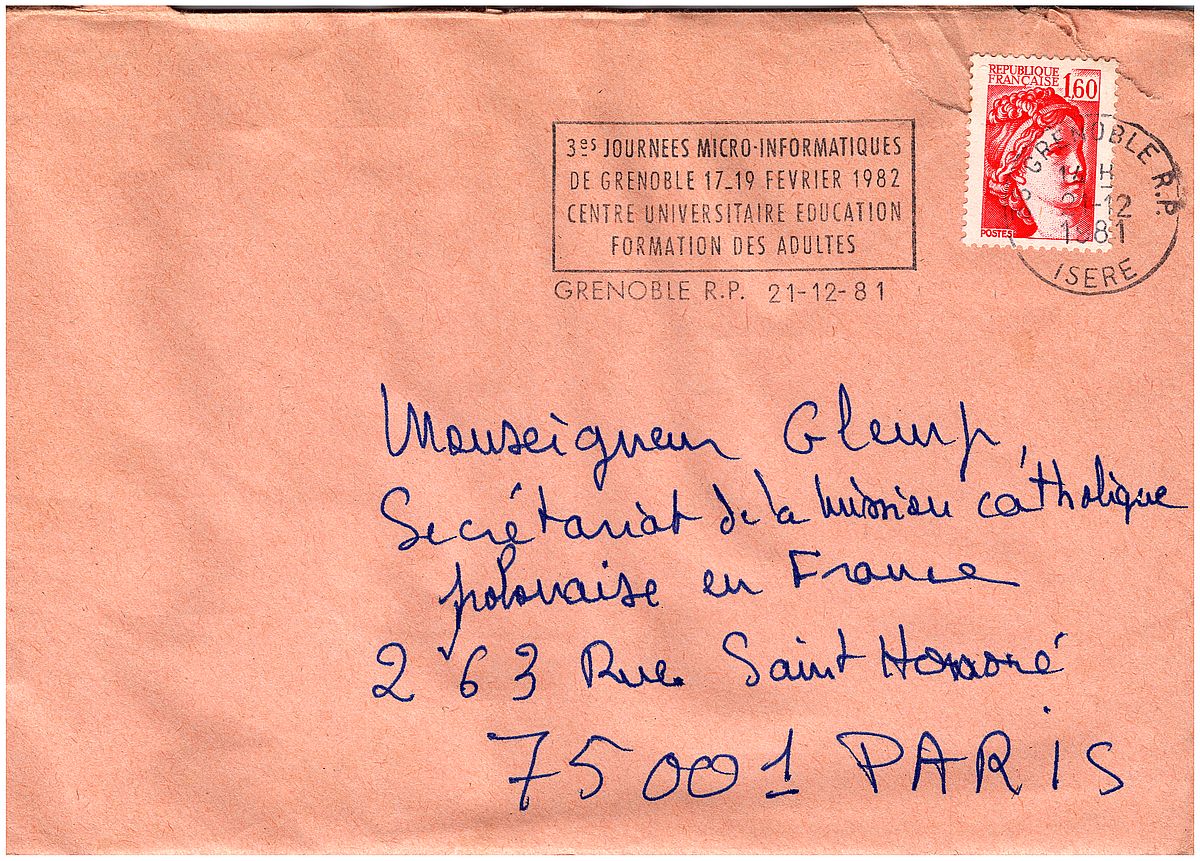 REPUBLIQUE
FRANÇAISE
1,60
POSTES
3es JOURNEES MICRO-INFORMATIQUES
DE GRENOBLE 17_19 FEVRIER 1982
CENTRE UNIVERSITAIRE EDUCATION
FORMATION DES ADULTES
GRENOBLE R.P. 21-12-81
GRENOBLE R.P.
-12
1981
ISERE
Monseigneur Glemp,
Secrétariat de la mission catholique
polonaise en France
263 Rue Saint Honoré
75001 PARIS